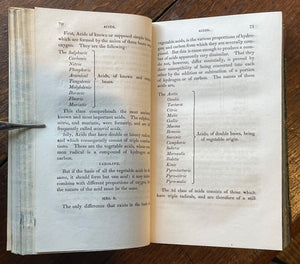 70 ACIDS.
First, Acids of known or supposed simple bases, which are formed by the union of these bases with oxygen. They are the following:
The Sulphuric
Carbonic
Nitric
Phosphoric
Arsenical
Tungstenic
Molybdenic
Boracic
Fluoric
Muriatic
Acids, of known and simple bases.
This class comprehends the most anciently known and most important acids. The sulphuric,
are frequently called mineral acids.
2dly, Acids that have double or binary radicals, and which consequently consist of triple combinations. These are the vegetable acids, whose common radical is a compound of hydrogen and carbon.
CAROLINE.
But if the basis of all the vegetable acids be the same, it should form but one acid; it may indeed combine with different proportions of oxygen, but the nature of the acid must be the same.
MRS. B.
The only difference that exists in the basis of
ACIDS. 71
vegetable acids, is the various proportions of hydrogen and carbon from which they are severally composed. But this is enough to produce a number of acids apparently very dissimilar. That they do not, however, differ essentially, is proved by their susceptibility of being converted into each other, by the addition or subtraction of a portion of hydrogen or of carbon. The names of these acids are,
The Acetic
Oxalic
Tartarous
Citric
Malic
Gallic
Mucous
Benzoic
Succinic
Camphoric
Suberic
Moroxolic
Mellitic
Kinic
Pyromucous
Pyrotartarous
Pyroligneous
Acids, of double bases, being of vegetable origin.
The 3d class of acids consists of those which have triple radicals, and are therefore of a still